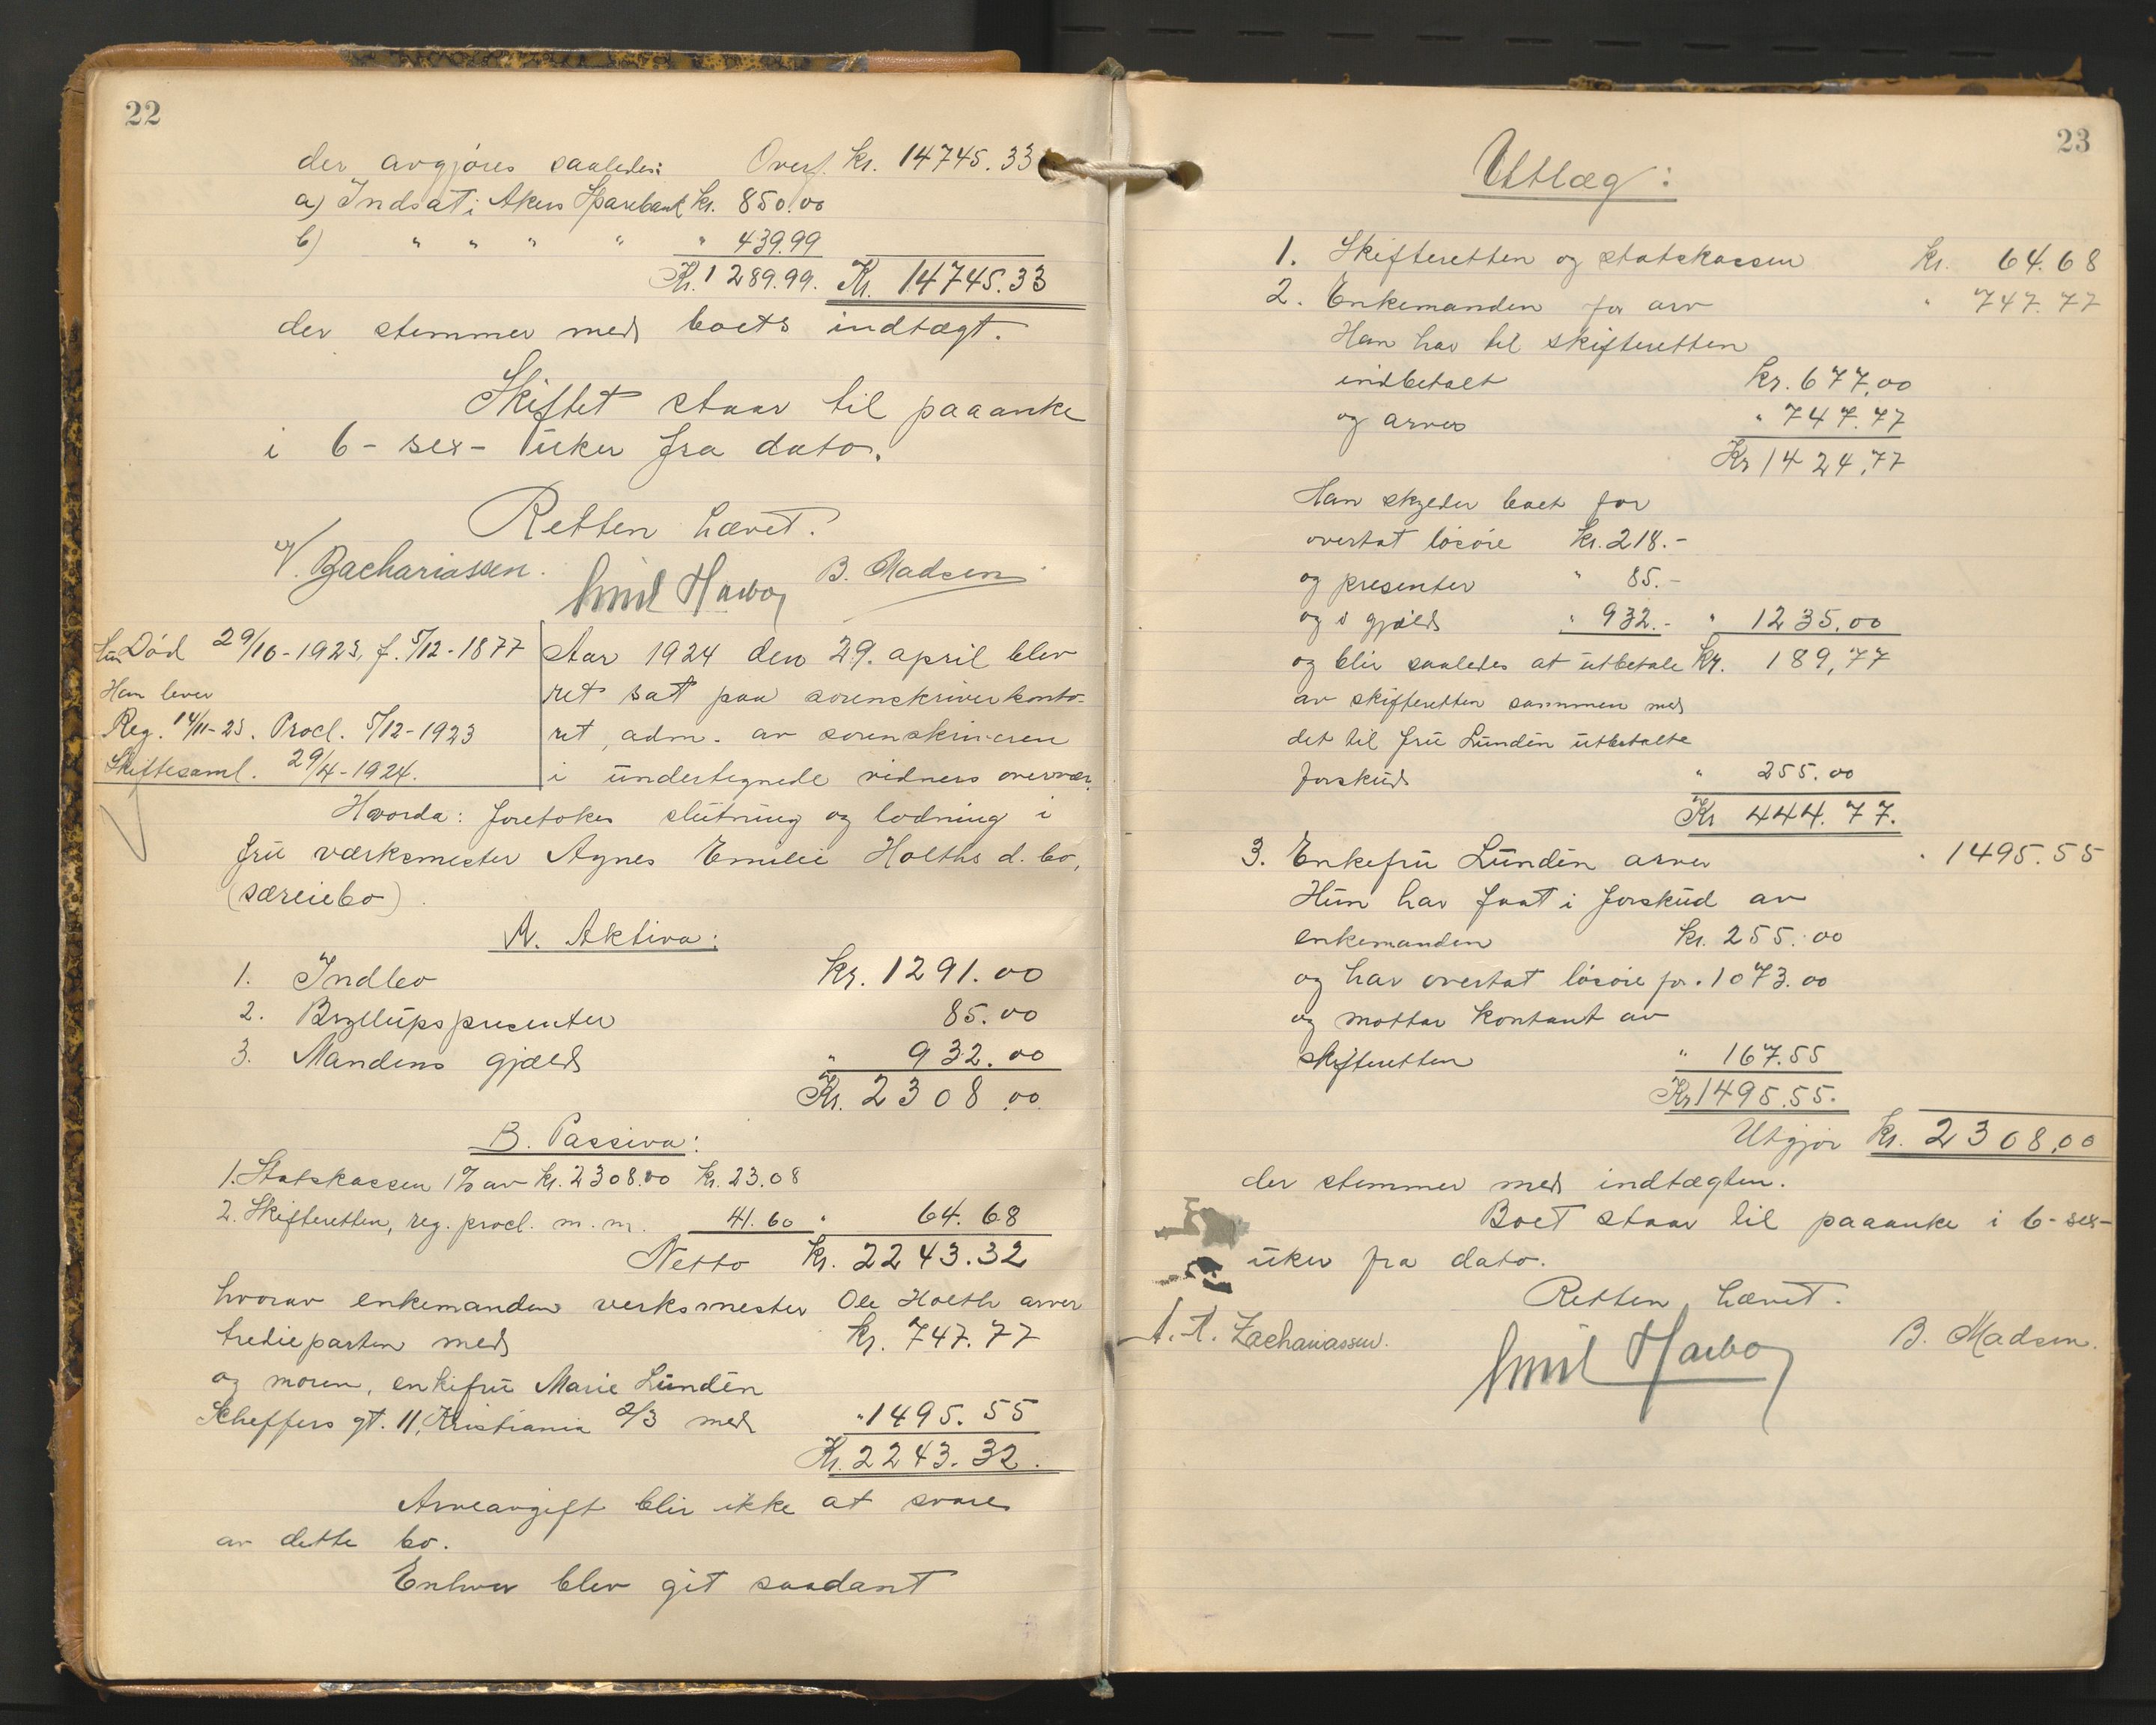 22
der avgjöres saaledes: Overf. kr. 14745.33
a) Indsat i Akers Sparebank kr. 850.00
b) " " " " " 439.99
Kr. 1289.99. Kr. 14745.33
der stemmer med boets indtægt.
Skiftet staar til paaanke
i 6 - sex - uker fra dato.
Retten hævet.
V. Zachariassen. Emil Harboy B. Madsen
Hun Död 29/10-1923, f. 5/12-1877
Han lever
Reg. 14/11-23. Procl. 5/12-1923
Skiftesaml. 29/4-1924.
Aar 1924 den 29. april blev
ret sat paa sorenskriverkonto-
ret, adm. av sorenskriveren
i undertegnede vidners overvær.
Hvorda: foretokes slutning og lodning i
fru værksmester Agnes Emilie Holths d. bo,
(særeiebo).
A. Aktiva:
1. Indbo kr. 1291.00
2. Bryllupspresenter 85.00
3. Mandens gjæld " 932.00
Kr. 2308.00
B. Passiva:
1. Statskassen 1% av kr. 2308.00 kr. 23.08
2. Skifteretten, reg. procl. m. m. 41.60 " 64.68
Netto kr. 2243.32
hvorav enkemanden verksmester Ole Holth arver
tredieparten med kr. 747.77
og moren, enkefru Marie Lundén
Scheffers gt. 11, Kristiania 2/3 med " 1495.55
Kr. 2243.32.
Arveavgift blir ikke at svare
av dette bo.
Enhver blev git saadant
23
Utlæg:
1. Skifteretten og statskassen kr. 64.68
2. Enkemanden for arv " 747.77
Han har til skifteretten
indbetalt kr. 677,00
og arves " 747.77
Kr 1424,77
Han skylder boet for
overtat lösöre kr. 218.-
og presenter " 85.-
og i gjæld " 932.- " 1235,00
og blir saaledes at utbetale Kr. 189,77
av skifteretten sammen med
det til fru Lundén utbetalte
forskud " 255.00
Kr 444.77.
3. Enkefru Lundén arver " 1495.55
Hun har faat i forskud av
enkemanden kr. 255.00
og har overtat lösöre for " 1073.00
og mottar kontant av
skifteretten " 167.55
Kr 1495.55.
Utgjör kr. 2308,00
der stemmer med indtægten.
Boet staar til paaanke i 6 - sex -
uker fra dato.
Retten hævet.
A. A. Zachariassen. Emil Harboy B. Madsen.